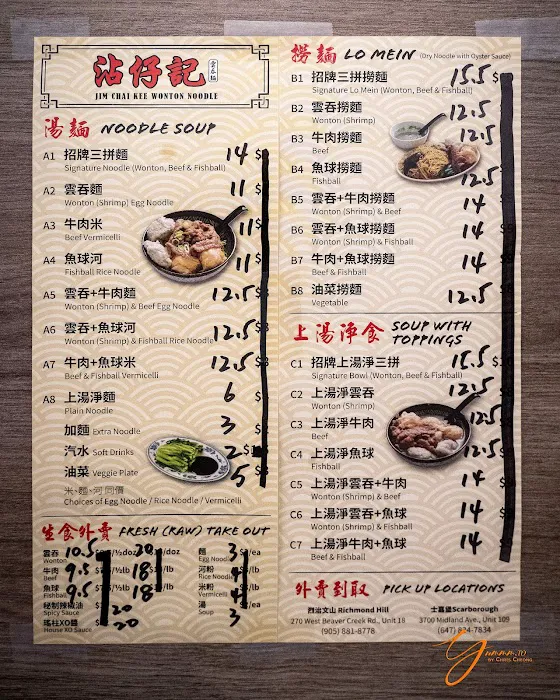 沾仔記 雲吞麵
JIM CHAI KEE WONTON NOODLE
湯麵 NOODLE SOUP
A1 招牌三拼麵 14 $
Signature Noodle (Wonton, Beef & Fishball)
A2 雲吞麵 11 $
Wonton (Shrimp) Egg Noodle
A3 牛肉米 11 $
Beef Vermicelli
A4 魚球河 11 $
Fishball Rice Noodle
A5 雲吞+牛肉麵 12.5 $
Wonton (Shrimp) & Beef Egg Noodle
A6 雲吞+魚球河 12.5 $
Wonton (Shrimp) & Fishball Rice Noodle
A7 牛肉+魚球米 12.5 $
Beef & Fishball Vermicelli
A8 上湯淨麵 6 $
Plain Noodle
加麵 Extra Noodle 3 $
汽水 Soft Drinks 2 $
油菜 Veggie Plate 5 $
米、麵、河同價
Choices of Egg Noodle / Rice Noodle / Vermicelli
生食外賣 FRESH (RAW) TAKE OUT
雲吞 10.5 /½doz 20 /doz
Wonton
牛肉 9.5 /½lb 18 /lb
Beef
魚球 9.5 /½lb 18 /lb
Fishball
秘制辣椒油 20
Spicy Sauce
瑤柱XO醬 20
House XO Sauce
麵 3 /ea
Egg Noodle
河粉 4 /lb
Rice Noodle
米粉 4 /lb
Vermicelli
湯 3 /ea
Soup
撈麵 LO MEIN (Dry Noodle with Oyster Sauce)
B1 招牌三拼撈麵 15.5 $
Signature Lo Mein (Wonton, Beef & Fishball)
B2 雲吞撈麵 12.5
Wonton (Shrimp)
B3 牛肉撈麵 12.5
Beef
B4 魚球撈麵 12.5
Fishball
B5 雲吞+牛肉撈麵 14 $
Wonton (Shrimp) & Beef
B6 雲吞+魚球撈麵 14 $
Wonton (Shrimp) & Fishball
B7 牛肉+魚球撈麵 14 $
Beef & Fishball
B8 油菜撈麵 12.5 $
Vegetable
上湯淨食 SOUP WITH TOPPINGS
C1 招牌上湯淨三拼 15.5 $
Signature Bowl (Wonton, Beef & Fishball)
C2 上湯淨雲吞 12.5
Wonton (Shrimp)
C3 上湯淨牛肉 12.5
Beef
C4 上湯淨魚球 12.5
Fishball
C5 上湯淨雲吞+牛肉 14 $
Wonton (Shrimp) & Beef
C6 上湯淨雲吞+魚球 14 $
Wonton (Shrimp) & Fishball
C7 上湯淨牛肉+魚球 14 $
Beef & Fishball
外賣到取 PICK UP LOCATIONS
烈治文山 Richmond Hill
270 West Beaver Creek Rd., Unit 18
(905) 881-8778
士嘉堡 Scarborough
3700 Midland Ave., Unit 109
(647) 824-7834
yummm.to
BY CHRIS CHEONG